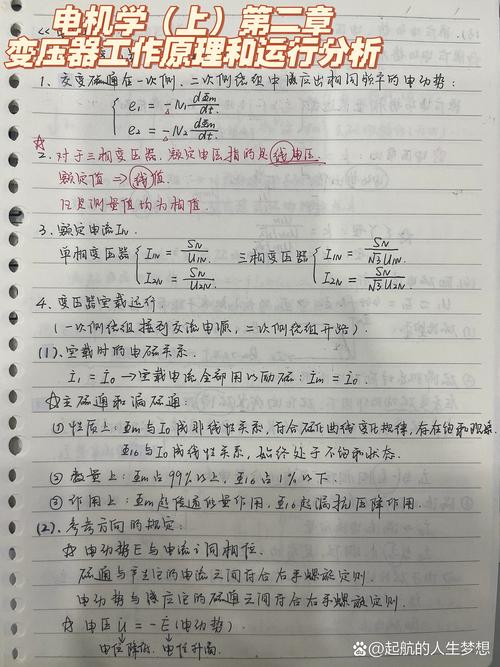 电机学（上）第二章
变压器工作原理和运行分析
1、交变磁通在一次侧、二次侧绕组中感应出相同频率的电动势：
e₁ = -N₁ dΦm/dt.
e₂ = -N₂ dΦm/dt.
2. 对于三相变压器，额定电压指的是线电压.
额定值 ⇒ 线值.
但是测量值均为相值.
3. 额定电流IN.
单相变压器 { I1N = SN/U1N. 三相变压器 { I1N = SN/√3U1N.
I2N = SN/U2N. I2N = SN/√3U2N.
4. 变压器空载运行.
(一次侧绕组接到交流电源，二次侧绕组开路).
(1). 空载时的电磁关系.
i₁ = i₀ → 空载电流全部用以励磁：im = i₀.
☆主磁通和漏磁通：
① 性质上：Φm与I₀成非线性关系，符合磁化曲线变化规律，存在饱和现象.
Φ1σ与I₀成线性关系，始终处于不饱和状态.
② 数量上：Φm占99%以上，Φ1σ占1%以下.
③ 作用上：Φm起传递能量作用，Φ1σ起漏抗压降作用.
(2). 参考方向的规定：
☆ 电动势E与电流i同相位.
磁通与产生它的电流之间符合右手螺旋定则.
电动势与感应它的磁通之间符合右手螺旋定则.
☆ 电压U̇ = -Ė(电动势).
电位降低. 电位升高.
@起航的人生梦想